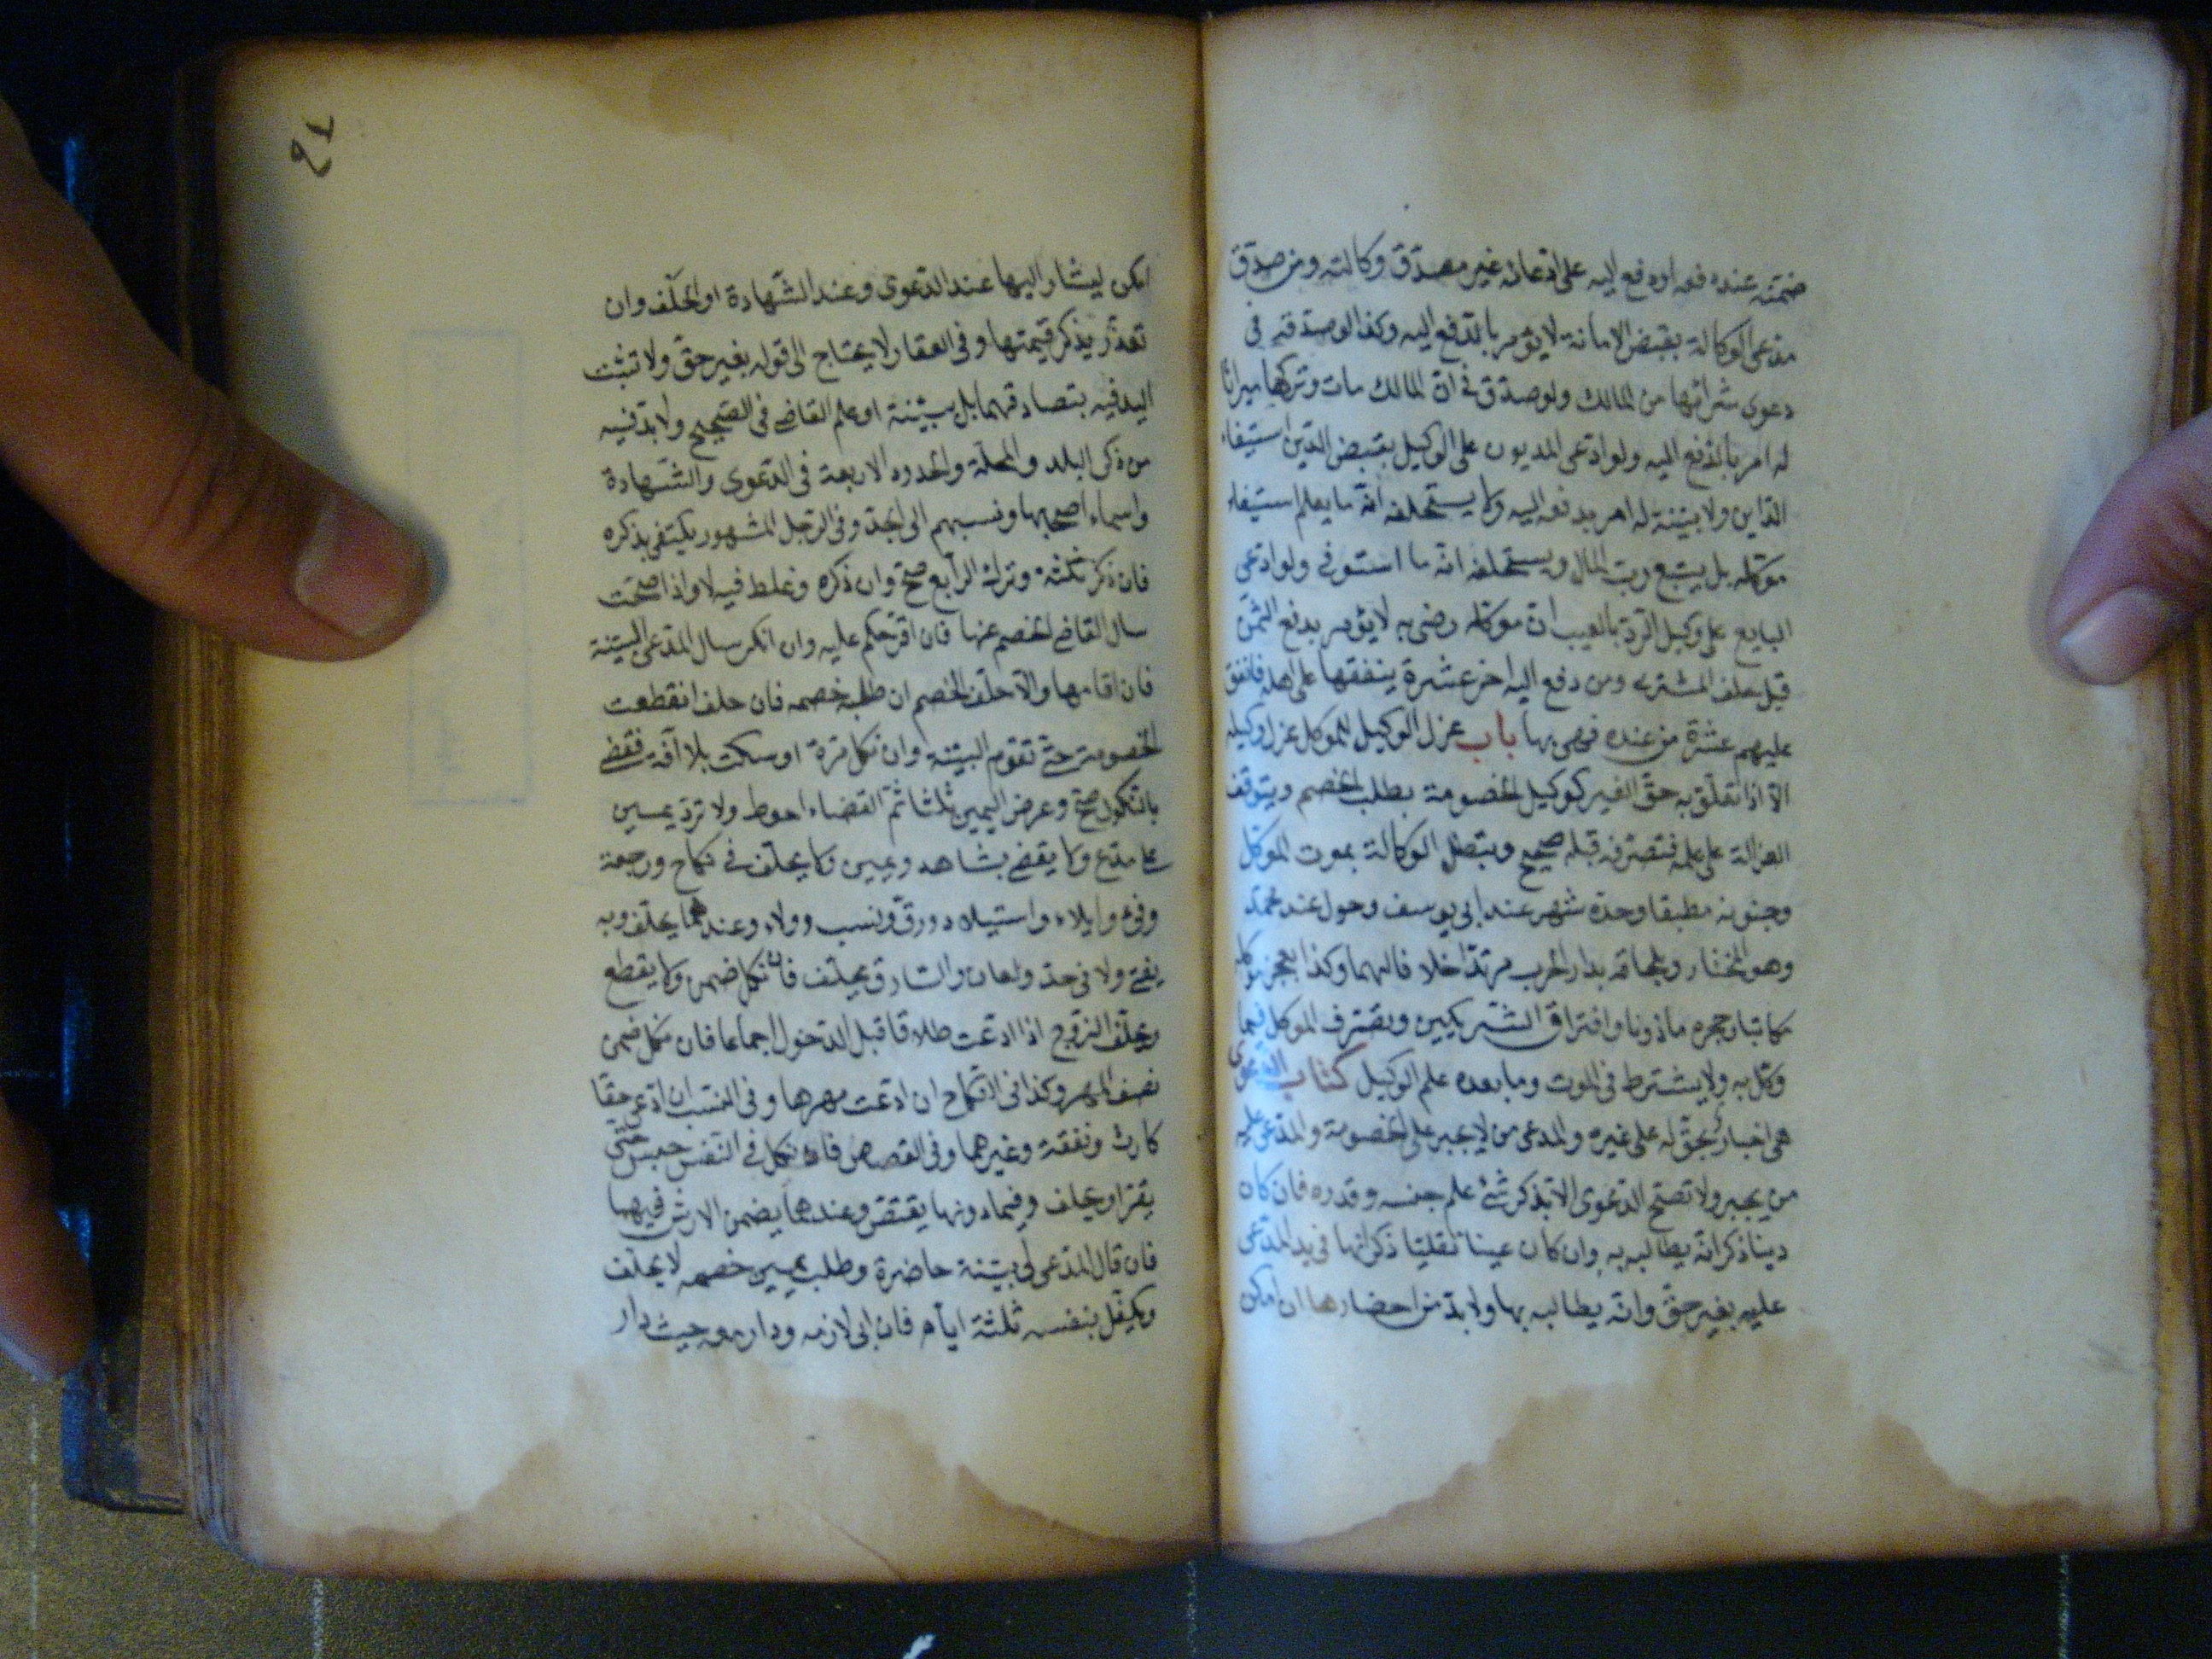 ضمنه عنده فعه او دفع اليه على ادعائه غير مصدق وكالته ومن صدق
مدعى الوكالة بقبض الامانة لا يؤمر بالدفع اليه وكذا لو صدقه فى
دعوى شرائها من المالك ولو صدق فى ان المالك مات وتركها ميراثا
له امر بالدفع اليه ولو ادعى المديون على الوكيل بقبض الدين استيفاء
الداين ولا بينة له امر بدفعه اليه ولا يستحلفه انه ما يعلم استيفاء
موكله بل يتبع رب المال ويستحلفه انه ما استوفى ولو ادعى
البايع على وكيل الرد بالعيب ان موكله رضى به لا يؤمر بدفع الثمن
قبل حلف المشترى ومن دفع اليه اخر عشرة ينفقها على اهله فانفق
عليهم عشرة من عنده فهى بها باب عزل الوكيل للموكل عزل وكيله
الا اذا تعلق به حق الغير كوكيل الخصومة بطلب الخصم ويتوقف
انعزاله على علمه فتصرفه قبله صحيح وتبطل الوكالة بموت الموكل
وجنونه مطبقا وحده شهر عند ابى يوسف وحول عند محمد
وهو المختار وبلحاقه بدار الحرب مرتدا خلافا لهما وكذا بعجز موكله
مكاتبا وحجره ماذونا وافتراق الشريكين وتصرف الموكل فيما
وكل به ولا يشترط فى الموت وما بعده علم الوكيل كتاب الدعوى
هى اخبار بحق له على غيره والمدعى من لا يجبر على الخصومة والمدعى عليه
من يجبر ولا تصح الدعوى الا بذكر شئ علم جنسه وقدره فان كان
دينا ذكر انه يطالبه به وان كان عينا نقليا ذكر انها فى يد المدعى
عليه بغير حق وانه يطالبه بها ولا بد من احضارها ان امكن
٩٦
امكن ليشار اليها عند الدعوى وعند الشهادة او الحلف وان
تعذر يذكر قيمتها وفى العقار لا يحتاج الى قوله بغير حق ولا تثبت
اليد فيه بتصادقهما بل ببينة او علم القاضى فى الصحيح ولا بد فيه
من ذكر البلد والمحلة والحدود الاربعة فى الدعوى والشهادة
واسماء اصحابها ونسبهم الى الجد وفى الرجل المشهور يكتفى بذكره
فان ذكر ثلثة وترك الرابع صح وان ذكره وغلط فيه لا واذا صحت
سال القاضى الخصم عنها فان اقر حكم عليه وان انكر سال المدعى البينة
فان اقامها والا حلف الخصم ان طلبه خصمه فان حلف انقطعت
الخصومة حتى تقوم البينة وان نكل مرة او سكت بلا آفة فقضى
بالنكول صح وعرض اليمين ثلثا ثم القضاء احوط ولا ترد يمين
على مدع ولا يقضى بشاهد ويمين ولا يحلف فى نكاح ورجعة
وفئ وايلاء واستيلاد ورق ونسب وولاء وعندهما يحلف وبه
يفتى ولا فى حد ولعان والسارق يحلف فان نكل ضمن ولا يقطع
ويحلف الزوج اذا ادعت طلاقا قبل الدخول اجماعا فان نكل ضمن
نصف المهر وكذا فى النكاح ان ادعت مهرها وفى النسب ان ادعى حقا
كارث ونفقة وغيرهما وفى القصاص فان نكل فى النفس حبس حتى
يقر او يحلف وفيما دونها يقتص وعندهما يضمن الارش فيهما
فان قال المدعى لى بينة حاضرة وطلب يمين خصمه لا يحلف
ويكفل بنفسه ثلثة ايام فان ابى لازمه ودار معه حيث دار